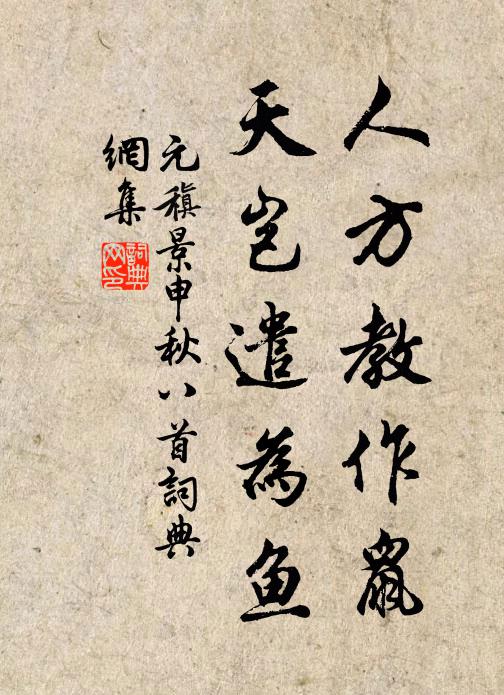 人方教作鼠
天岂遣為鱼
元稹景申秋八首詞典
網集
詞典网印